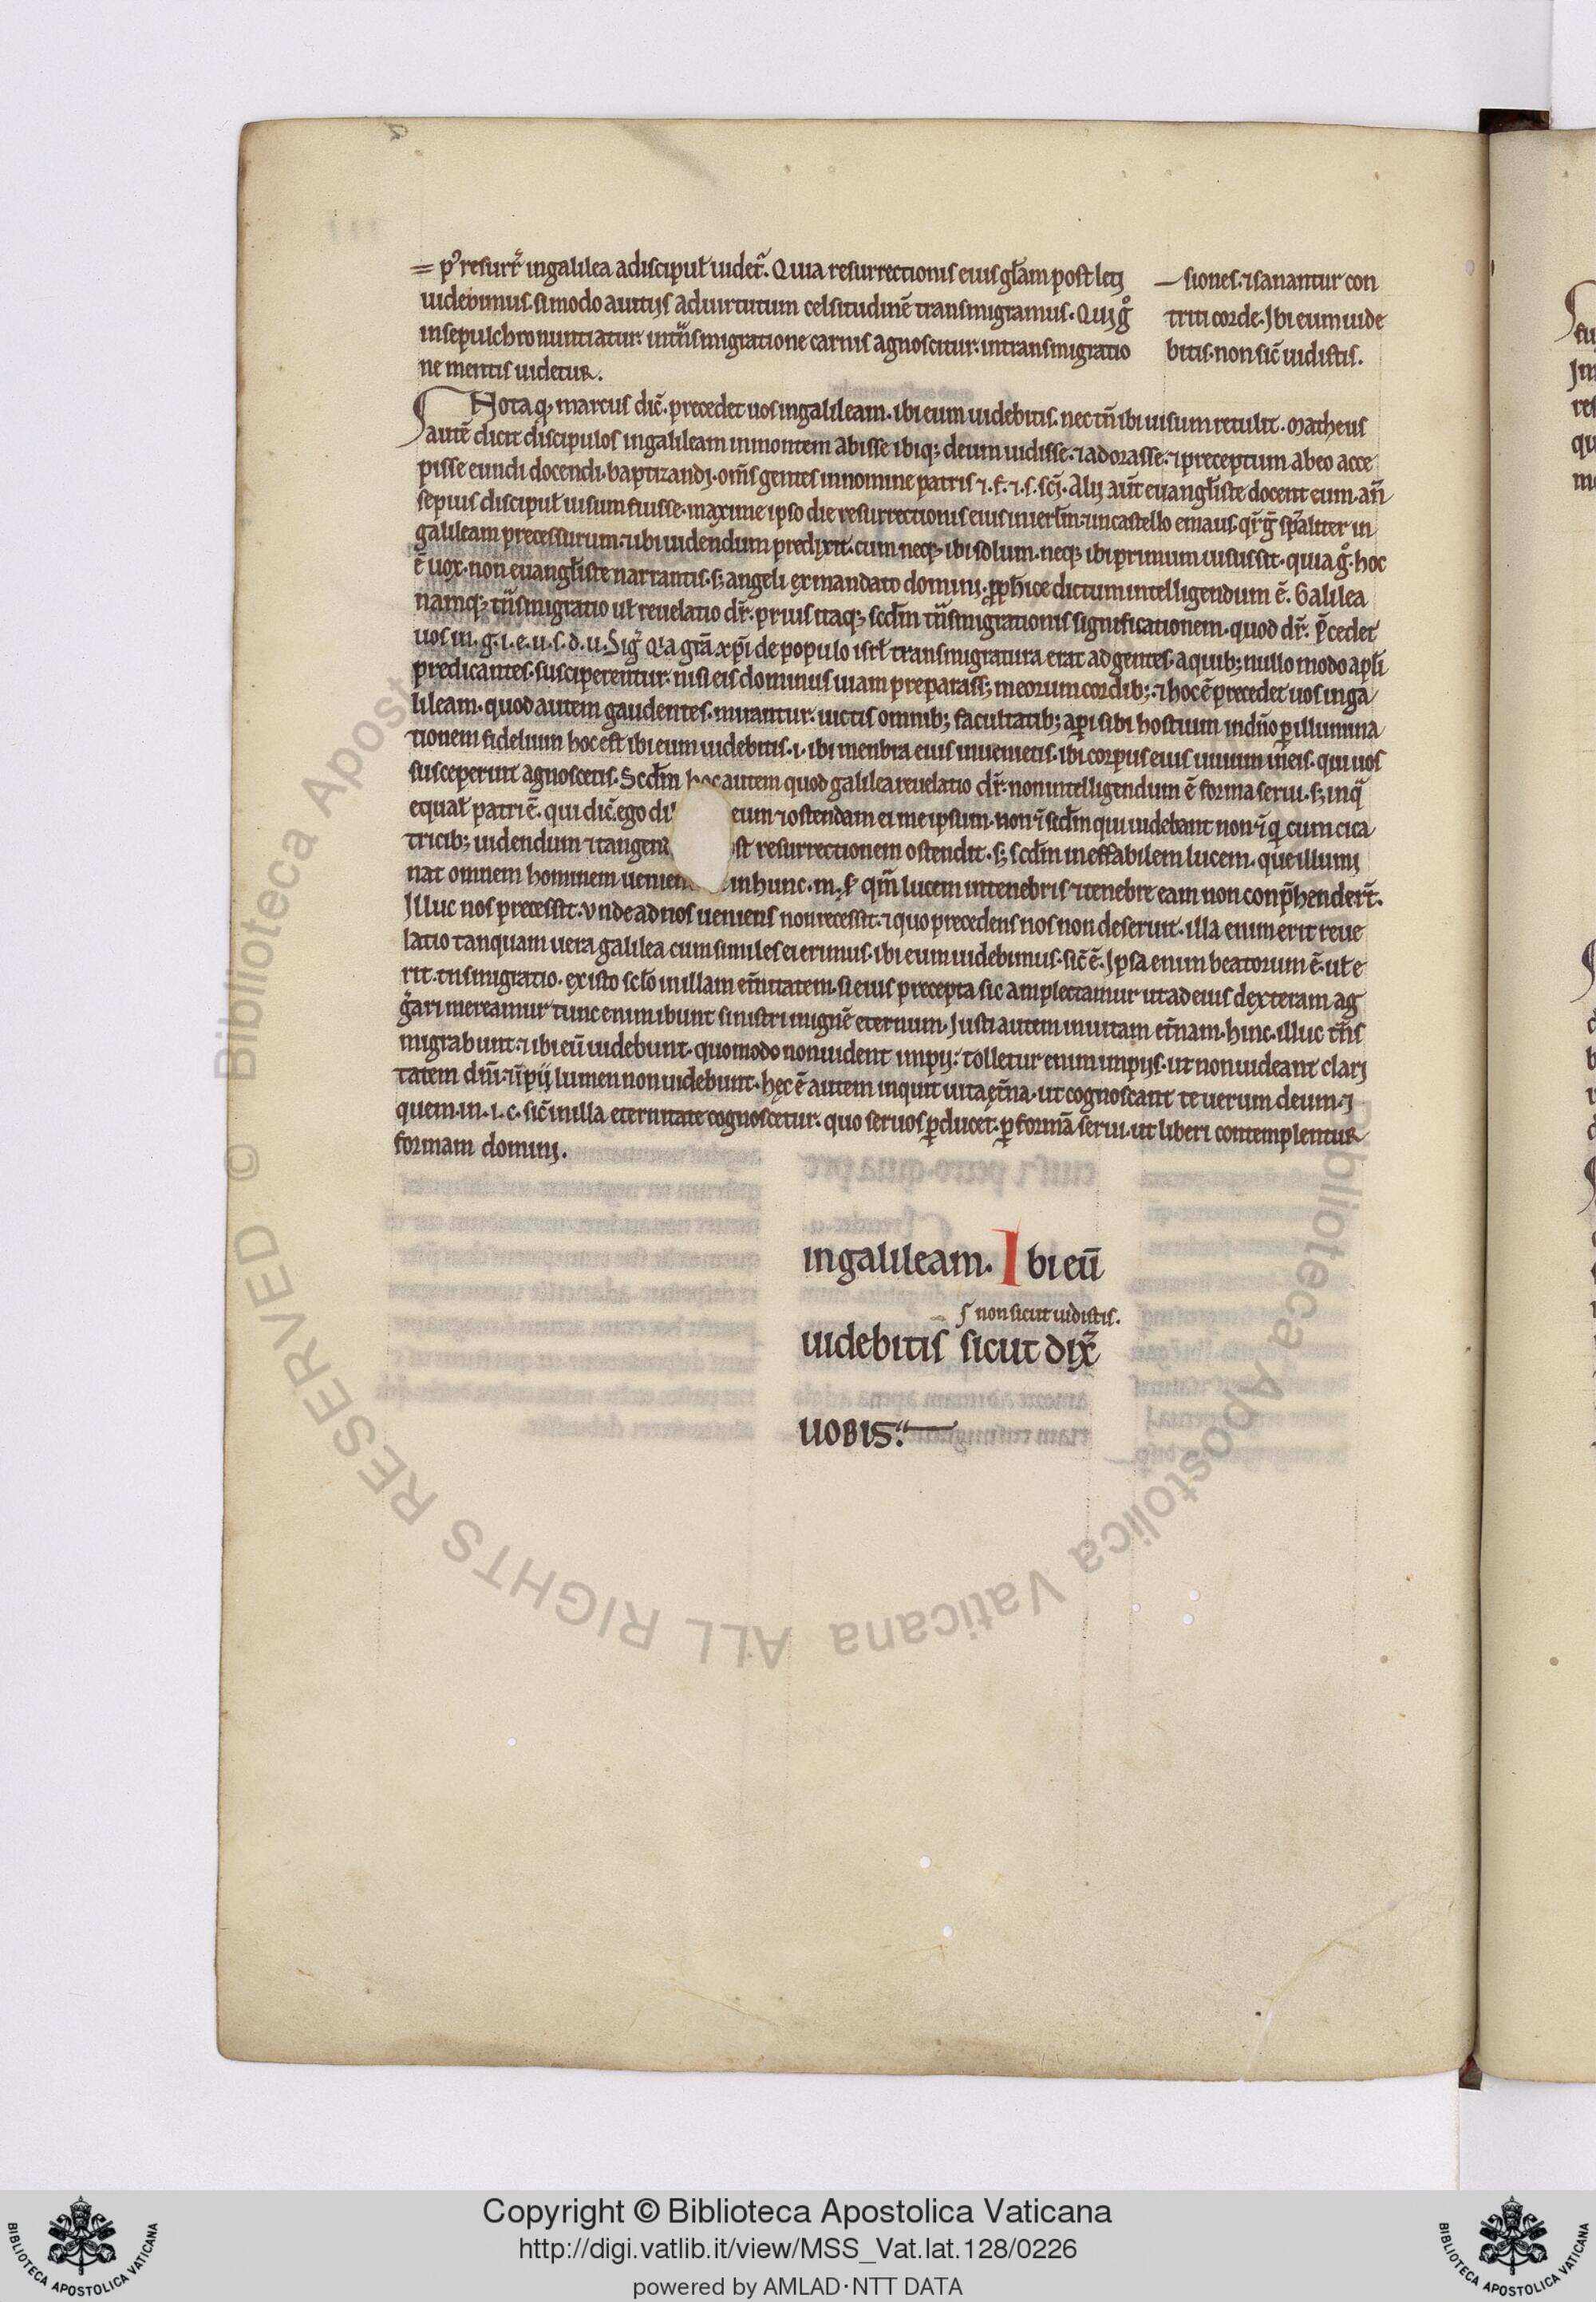 = p᷒ resurr̄ ingalilea adiscipuł uidet᷑. Quia resurrectionis eius gl̄am post leti
uidebimus. simodo auitijs aduirtutum celsitudinē transmigramus. Qui g͛
insepulchro nuntiatur. int̄nsmigratione carnis agnoscitur. intransmigratio
ne mentis uidetur.
— siones. ⁊sanantur con
triti corde. Ibi eum uide
bitis. non sic̄ uidistis.
Nota q; marcus dic̄. precedet uos ingalileam. ibi eum uidebitis. nec tn̄ ibi uisum retulit. Matheus
autē dicit discipulos ingalileam inmontem abisse ibiq; deum uidisse. ⁊adorasse. ⁊preceptum abeo acce
pisse eundi docendi. baptizandi. om̄s gentes innomine patris ⁊. f. ⁊. s. sc̄i. Alij aut̄ euangl̄iste docent eum. an̄
sepius discipuł uisum fuisse. maxime ipso die resurrectionis eius inierl̄m. ⁊incastello emaus. qr̄ g̊ sp̄aliter in
galileam precessurum. ⁊ibi uidendum predixit. cum neq; ibi solum. neq; ibi primum uisus sit. quia g͛. hoc
ē uox. non euangl̄iste narrantis. s; angeli ex mandato domini. p̱ph̄ice dictum intelligendum ē. Galilea
namq; tn̄smigratio uł reuelatio dr̄. prius itaq; scd̄m tn̄smigrationis significationem. quod dr̄. p̄cedet
uos in. g. i. e. u. s. d. u. Sig͛ q̄a gr̄a xp̄i de populo isrł transmigratura erat ad gentes. aquib; nullo modo apłi
predicantes. susciperentur. nisi eis dominus uiam preparass; ineorum cordib;. ⁊hoc ē precedet uos inga
lileam. quod autem gaudentes. mirantur. uictis omnib; facultatib; ap̱i sibi hostium indn̄o p̱ illumina
tionem fidelium hoc est ibi eum uidebitis. i. ibi menbra eius inuenietis. ibi corpus eius uiuum ineis. qui uos
susceperint agnoscetis. Scd̄m hoc autem quod galilea reuelatio dr̄. non intelligendum ē forma serui. s; inq̄
equał patri ē. qui dic̄. ego di eum ⁊ostendam ei me ipsum. non ī scd̄m qui uidebant non ī q̱ cum cica
tricib; uidendum ⁊tangen st resurrectionem ostendit. s; scd̄m ineffabilem lucem. que illumi
nat omnem hominem uenien inhunc. m. s; qm̄ lucem intenebris ⁊tenebre eam non conp̄henderт̄.
Illuc nos precessit. Vnde ad nos ueniens non recessit. ⁊quo precedens nos non deseruit. illa enim erit reue
latio tanquam uera galilea cum similes ei erimus. ibi eum uidebimus. sic̄ ē. Ipsa enim beatorum ē. uł e
rit. tn̄smigratio. existo scl̄o inillam et̄nitatem. si eius precepta sic amplectamur ut ad eius dexteram ag
g͛ari mereamur tunc enim ibunt sinistri inignē eternum. Justi autem inuitam et̄nam. hinc. illuc tn̄s
migrabunt. ⁊ibi eū uidebunt. quomodo non uident impij. tolletur enim impijs. ut non uideant clari
tatem dn̄i. ⁊īpij lumen non uidebunt. hęc ē autem inquit uita et̄na. ut cognoscant te uerum deum. ⁊
quem. m. i. c. sic̄ inilla eternitate cognoscetur. quo seruos p̱ducet. p̱ formā serui. ut liberi contemplentur
formam domini.
ingalileam. Ibi eū
ſ non sicut uidistis.
uidebitis sicut dix̄
uobis.
Copyright © Biblioteca Apostolica Vaticana
http://digi.vatlib.it/view/MSS_Vat.lat.128/0226
powered by AMLAD·NTT DATA
© Biblioteca Apostolica Vaticana ALL RIGHTS RESERVED
BIBLIOTECA APOSTOLICA VATICANA
BIBLIOTECA APOSTOLICA VATICANA